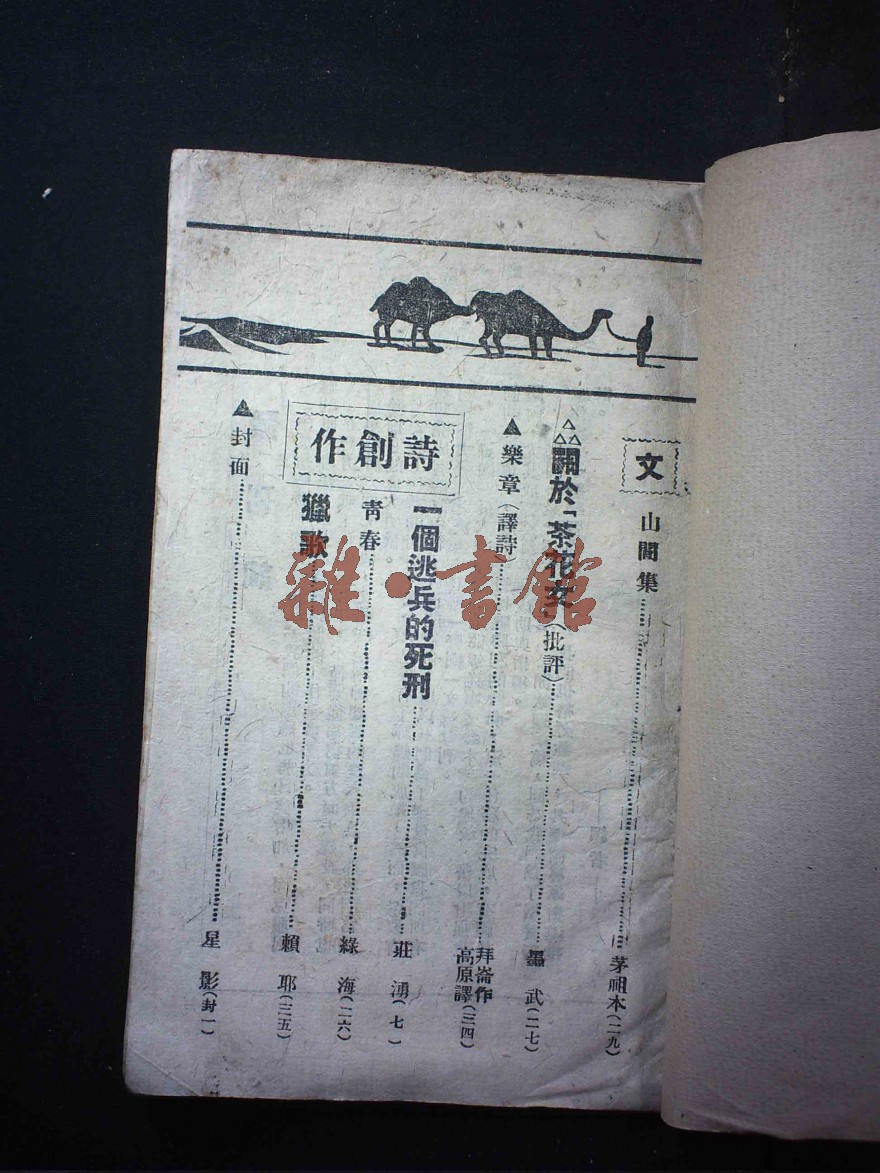 文
山間集……茅祖本(二九)
關於「茶花女」(批評)……墨武(二七)
▲樂章(譯詩)……拜崙作 高原譯(三四)
詩創作
一個逃兵的死刑……莊湧(七)
青春……綠海(二六)
獵歌……賴耶(三五)
▲封面……星影(封一)
雜·書館